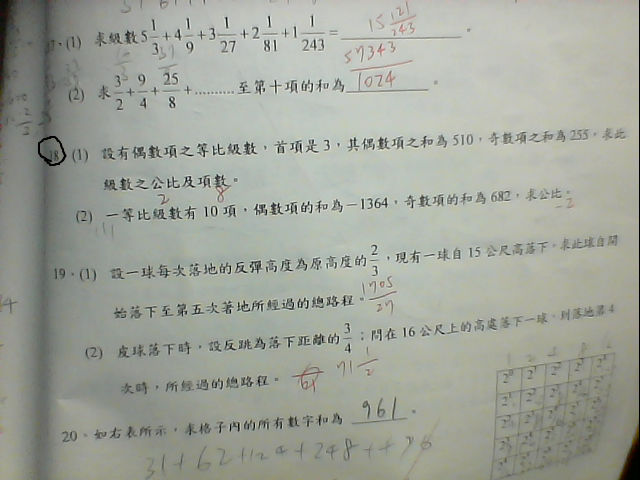 (1) 求級數5 1/3 + 4 1/9 + 3 1/27 + 2 1/81 + 1 1/243 = 15 121/243 。
(2) 求 3/2 + 9/4 + 25/8 + ..........至第十項的和為 57343/1024 。
18 (1) 設有偶數項之等比級數，首項是3，其偶數項之和為510，奇數項之和為255，求此
級數之公比及項數。
2 8
(2) 一等比級數有10項，偶數項的和為－1364，奇數項的和為682，求公比。
-2
19．(1) 設一球每次落地的反彈高度為原高度的 2/3，現有一球自15公尺高落下，求此球自開
始落下至第五次著地所經過的總路程。 1705/27
(2) 皮球落下時，設反跳為落下距離的 3/4；問在16公尺上的高處落下一球，到落地第4
次時，所經過的總路程。 71 1/2
20．如右表所示，求格子內的所有數字和為 961 。
31+62+124+248+